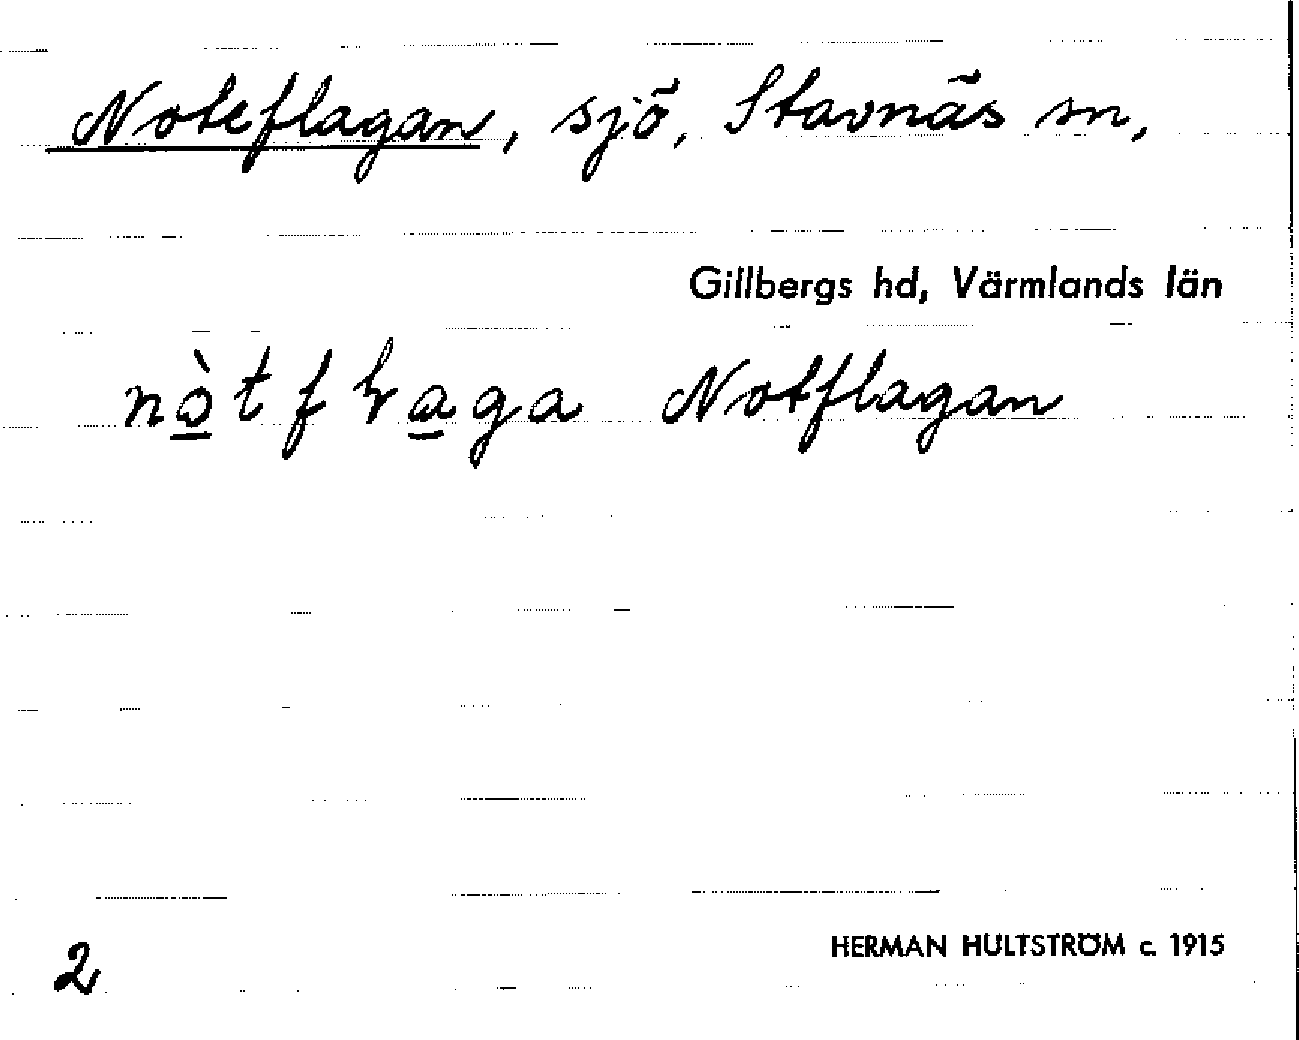 Noteflagan, sjö, Stavnäs sn,
Gillbergs hd, Värmlands län
nò̲tfɽa̲ga Notflagan
2
HERMAN HULTSTRÖM c. 1915